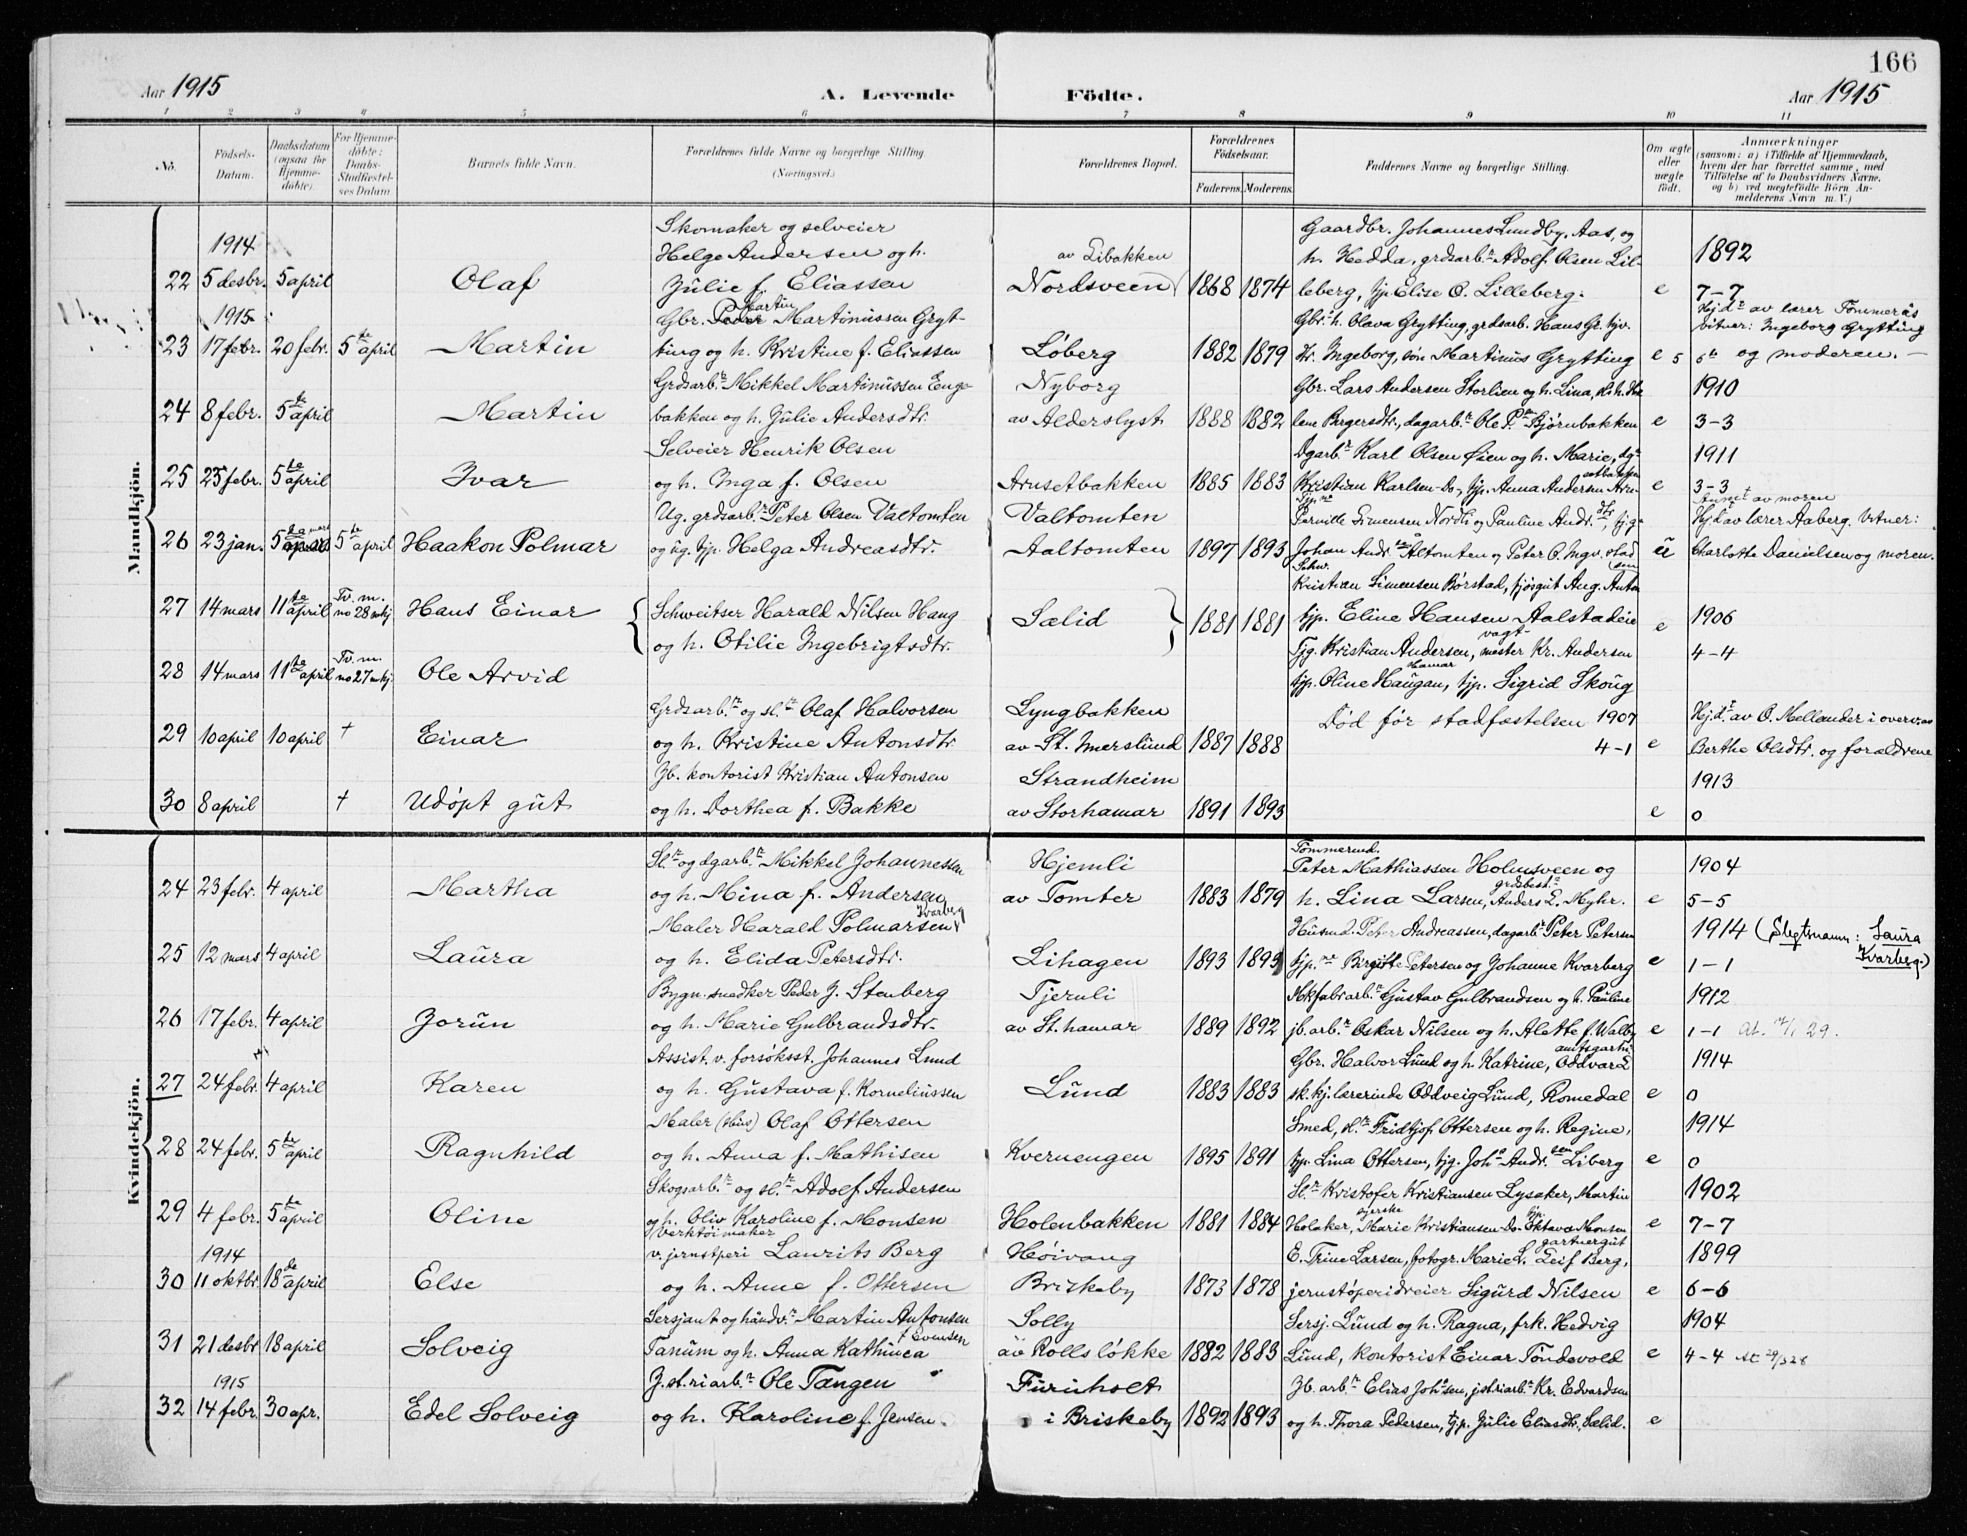 166
Aar 1915 A. Levende Födte. Aar 1915
1 2 3 4 5 6 7 8 9 10 11
No. Födsels-Datum. Daabsdatum (ogsaa för Hjemmedöbte). For Hjemmedöbte: Daabs-Stadfæstelses Datum. Barnets fulde Navn. Forældrenes fulde Navne og borgerlige Stilling. (Næringsvei.) Forældrenes Bopæl. Forældrenes Födselsaar. Faderens. Moderens. Faddernes Navne og borgerlige Stilling. Om ægte eller uægte födt. Anmærkninger
(saasom: a) i Tilfælde af Hjemmedaab, hvem der har forrettet samme, med Tilföielse af to Daabsvidners Navne, og b) ved uægtefödte Börn Anmelderens Navn m. V.)
Mandkjön.
Skomaker og selveier Gaardbr. Johannes Lundby, Aas, og
1914 Helge Andersen og h. av Libakken h. Hedda, grdsarb.r Adolf Olsen Lil- 1892
22 5 desbr. 5 april Olaf Julie f. Eliassen Nordsveen 1868 1874 leberg, tjp Elise O. Lilleberg. e 7-7
1915 Gbr. Peder Martin Martinussen Gryt- Gbr. h. Olava Grytting, grdsarb. Hans Gr. tjv. Hjd.t av lærer Tömmerås vitner: Ingeborg Grytting
23 17 febr. 20 febr. 5te april Martin ting og h. Kristine f. Eliassen Löberg 1882 1879 Gr. Ingeborg, søn Martinus Grytting e og moderen. —
Grdsarb.r Mikkel Martinussen Enge- Nyborg Gbr. Lars Andersen Storlien og h. Lina, 1910
24 8 febr. 5te april Martin bakken og h. Julie Andersdtr. av Alderslyst 1888 1882 lene Birgersdtr., dagarb.r Ole P. Bjørnbakken e 3-3
Selveier Henrik Olsen Dgarb.r Karl Olsen Øien og h. Marie, 1911
25 25 febr. 5te april Ivar og h. Inga f. Olsen Arnsetbakken 1885 1883 Kristian Karlsen Do, tjp. Anna Andersen Arn-setbakken e 3-3
Ug. grdsarb.r Peter Olsen Valtomten Valtomten Pernille Simensen Nordli og Pauline Andr. dtr, tjg. Anmeldt av moren Hjd.t av lærer Aaberg. Vitner:
26 23 jan. 5te mars 5te april Haakon Polmar og ug. tjp. Helga Andreasdtr. Aaltomten 1897 1893 Johan Andr. sen Altomten og Peter O. Ingv. stad u Charlotte Danielsen og moren.
Schw. Kristian Simensen Börstad, fjösgut Aug. Anton
27 14 mars 11te april Tv. m. no 28 mkj Hans Einar Schweitser Harald Nilsen Haug Sælid 1881 1881 tjp. Eline Hansen Aalstadeie e 1906
og h. Otilie Ingebrigtsdtr. Tjg. Kristian Andersen, vogt-mester Kr. Andersen 4-4
28 14 mars 11te april Tv. m. no 27 mkj. Ole Arvid tjp. Oline Haugan, Hamar tjp. Sigrid Skoug
Grdsarb.r og sl.r Olaf Halvorsen Lyngbakken Död för stadfæstelsen 1907 Hjd.t av O. Mellander i overvær
29 10 april 10 april † Einar og h. Kristine Antonsdtr av St. Imerslund 1887 1888 4-1 e Berthe Olsdtr. og forældrene
Jb. kontorist Kristian Antonsen Strandheim 1913
30 8 april † Udöpt gut og h. Dorthea f. Bakke av Storhamar 1891 1893 e 0
Kvindekjön.
Sl.r og dgarb.r Mikkel Johannessen Hjemli Tömmermd. Peter Mathiassen Holmsveen og 1904
24 23 febr. 4 april Martha og h. Mina f. Andersen av Tomter 1883 1879 h. Lina Larsen, grdsbest.r Anders L. Myhr. e 5-5
Maler Harald Polmarsen Kvarberg Husmd. Peter Andreassen, dagarb.r Peter Petersen 1914 (Slegtsnavn: Laura Kvarberg.)
25 12 mars 4 april Laura og h. Elida Petersdtr. Lihagen 1893 1893 tjp.er Birgitte Petersen og Johanne Kvarberg e 1-1
Bygn. snedker Peder J. Stenberg Tjernli Mkfabrarb.r Gustav Gulbrandsen og h. Pauline 1912
26 17 febr. 4 april Jorun og h. Marie Gulbrandsdtr. av St. hamar 1889 1892 jb. arb.r Oskar Nilsen og h. Alette f. Walby e 1-1
Assist. v. forsöksst. Johannes Lund Gbr. Halvor Lund og h. Katrine, amtsgartn. Oddvar L 1914
27 24 febr. 4 april Karen og h. Gustava f. Korneliussen Lund 1883 1883 sk. kj. lærerinde Oddveig Lund, Romedal e 0
Maler (Hus) Olaf Ottersen Smed, sl.r Fridtjof Ottersen og h. Regine, 1914
28 24 febr. 5te april Ragnhild og h. Anna f. Mathisen Kvernengen 1895 1891 tjp. Lina Ottersen, tjg. Joh.s Andr. sen Liberg e 0
Skogsarb.r og sl.r Adolf Andersen Sl.r Kristofer Kristiansen Lysaker, Martin 1902
29 4 febr. 5te april Oline og h. Oliv Karoline f. Monsen Holenbakken 1881 1884 Holaker, syerske Marie Kristiansen Do. tjp. Oktava Monsen e 7-7
1914 Verktöimaker v. jernstperi Laurits Berg Höivang E. Trine Larsen, fotogr. Marie L. gartnergut Leif Berg, 1899
30 11 oktbr. 18de april Else og h. Anne f. Ottersen Briskeby 1873 1878 jernstöperidreier Sigurd Nilsen e 6-6
Sersjant og håndv.r Martin Antonsen Solly Sersj. Lund og h. Ragna, frk. Hedvig 1904
31 21 desbr 18 april Solveig Tanum og h. Anna Kathinca f Evensen av Rollslökke 1882 1883 Lund, kontorist Einar Töndevold e 4-4
1915 J. st. riarb.r Ole Tangen Furuholt Jb. arb.r Elias Johs.sen, jstriarb.r Kr. Edvardsen
32 14 febr. 30 apr. Edel Solveig og h. Karoline f. Jensen. i Briskeby 1892 1893 og h. Thora Pedersen, tjp. Julie Eliasdtr, Sælid. e